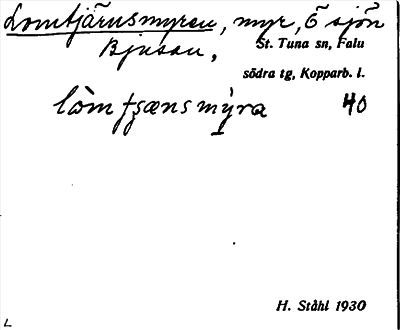 Lomtjärnsmyren, myr, Ö sjön
Bjusen,
St. Tuna sn, Falu
södra tg, Kopparb. l.
lòmtʂænsmỳra 40
H. Ståhl 1930
L